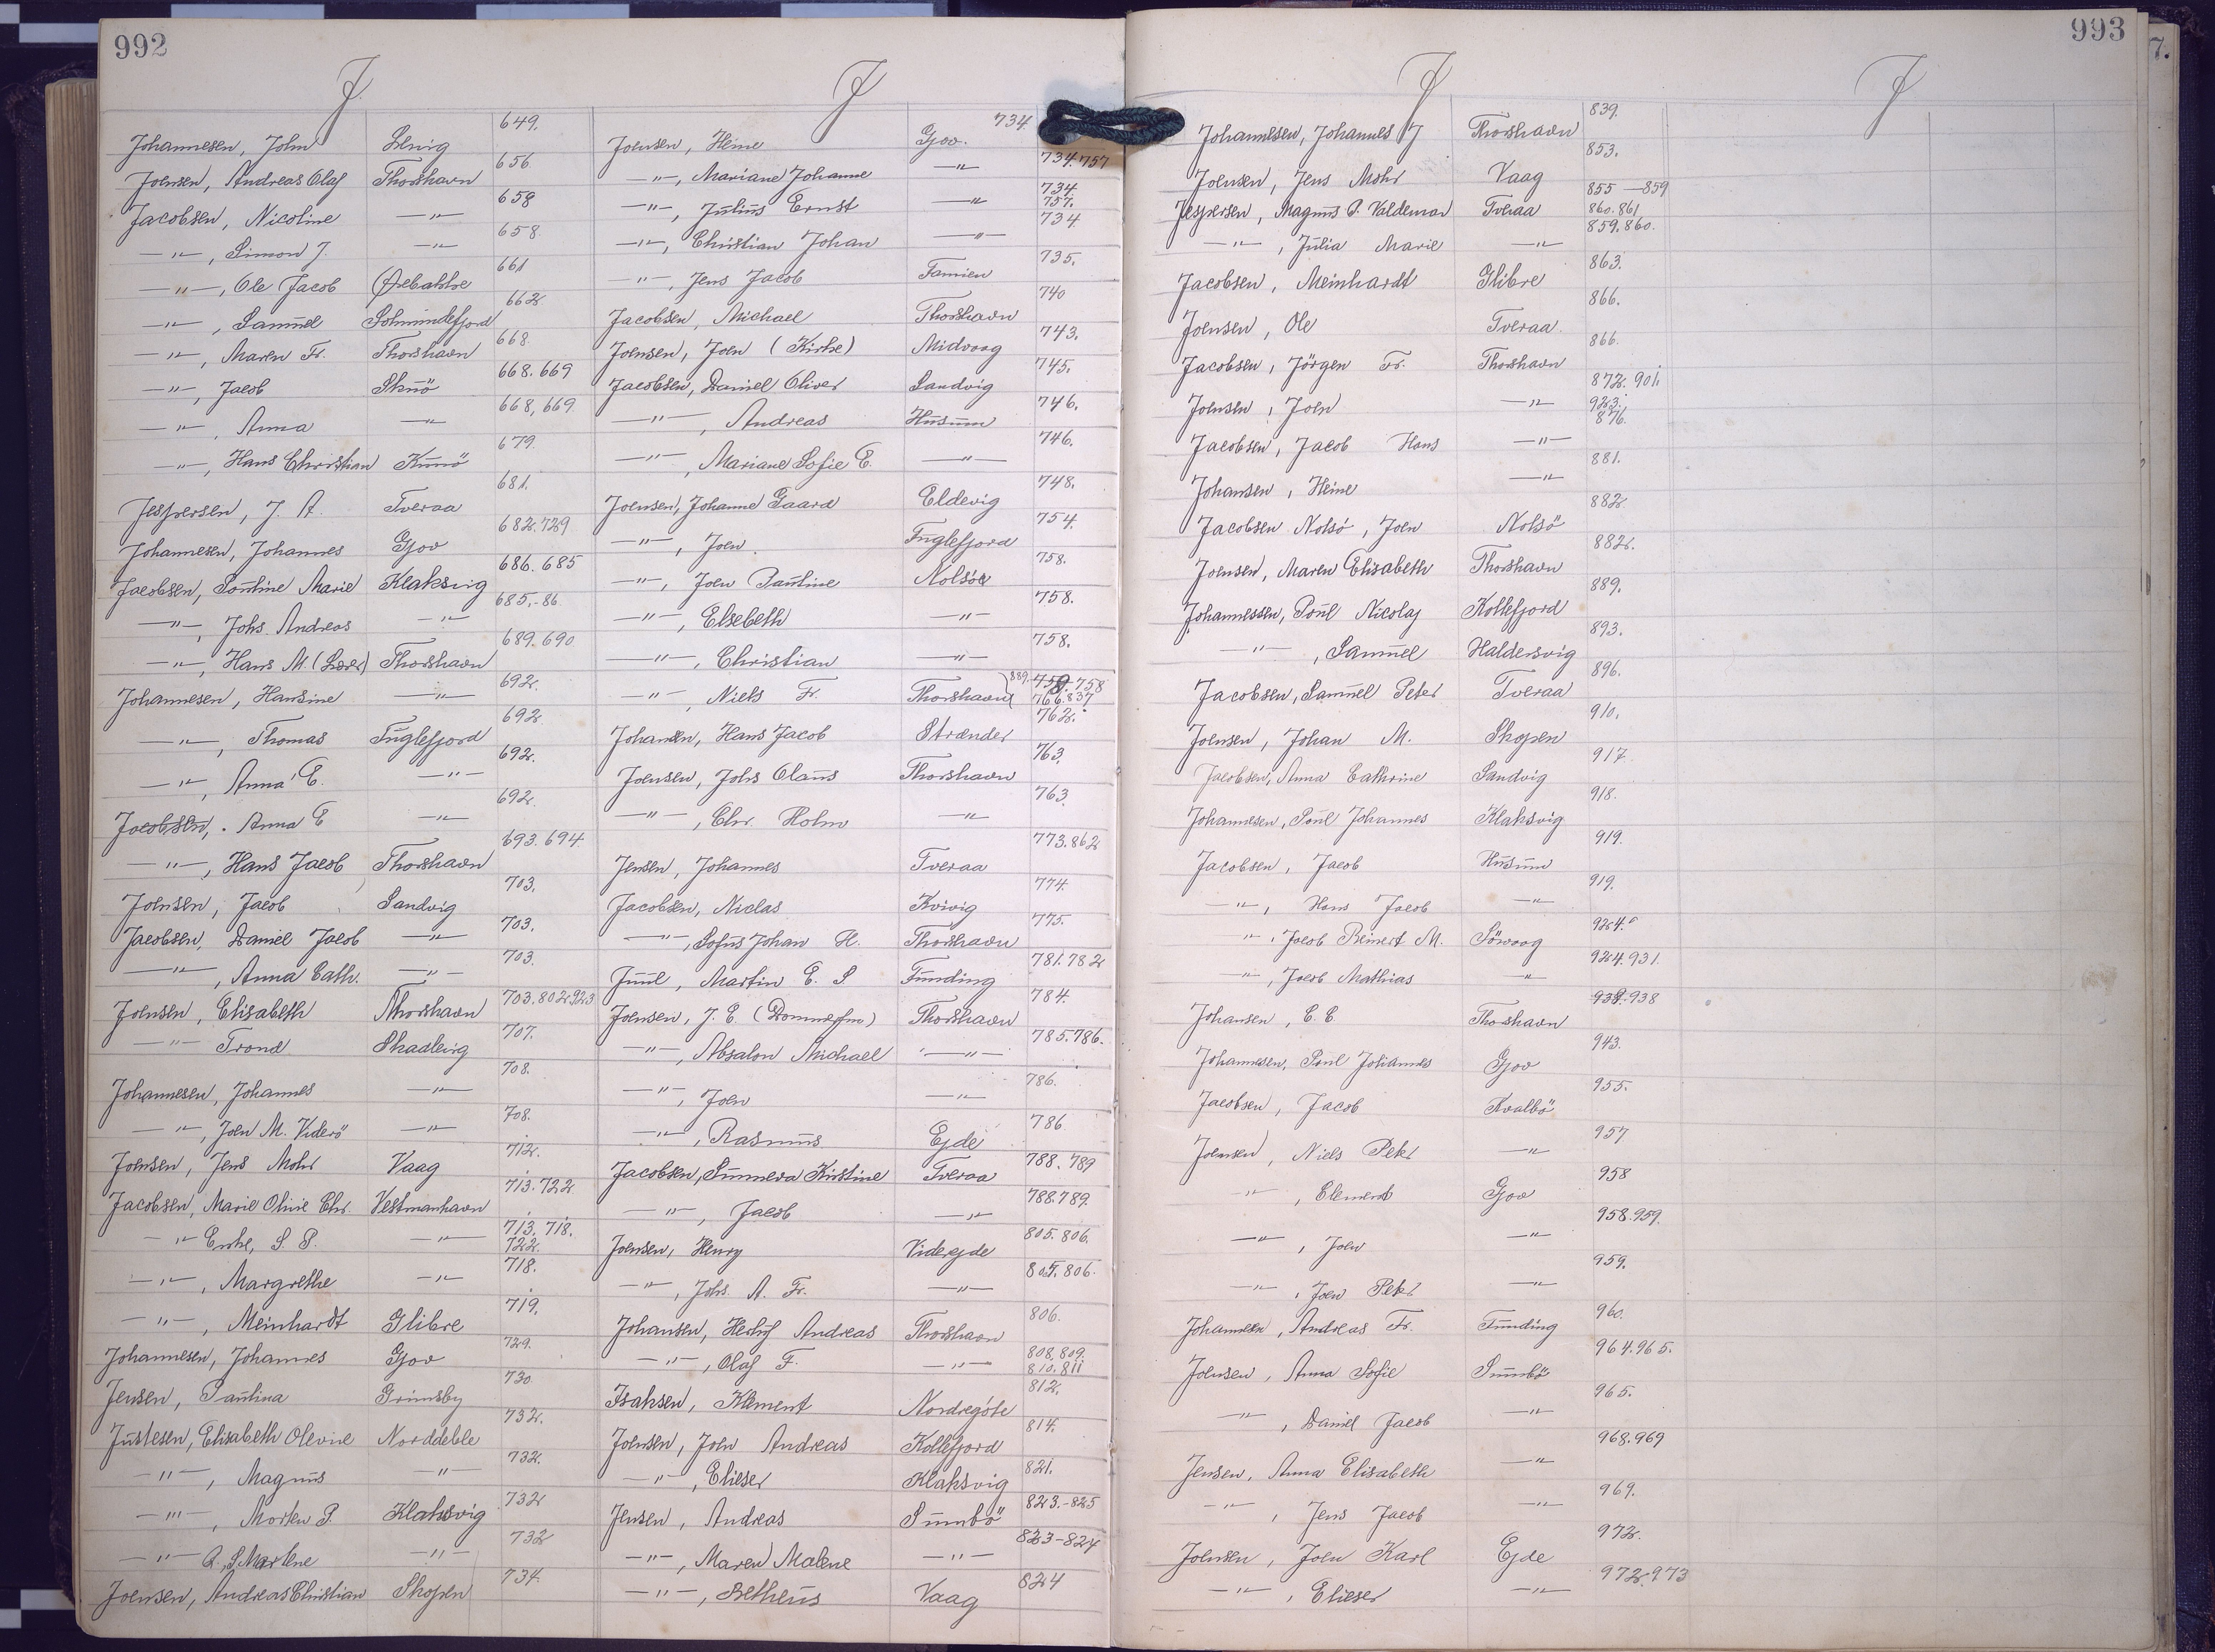 992
J.
Johannesen, John Lervig 649.
Joensen, Andreas Olaf Thorshavn 656
Jacobsen, Nicoline —"— 658
—"—, Simon J. —"— 658.
—"—, Ole Jacob Ørebakke 661
—"—, Samuel Solmundefjord 662
—"—, Maren Fr. Thorshavn 668.
—"—, Jacob Skuö 668.669
—"—, Anna —"— 668,669.
—"—, Hans Christian Kunö 679.
Jespersen, J. A. Tveraa 681.
Johannesen, Johannes Gjov 682.729
Jacobsen, Pouline Marie Klaksvig 686.685
—"—, Johs. Andreas —"— 685.-86.
—"—, Hans M. (Lærer) Thorshavn 689.690
Johannesen, Hansine —"— 692.
—"—, Thomas Fuglefjord 692.
—"—, Anna E. —"— 692.
Jacobsen, . Anna E —"— 692.
—"—, Hans Jacob Thorshavn 693.694.
Joensen, Jacob Sandvig 703.
Jacobsen, Daniel Jacob —"— 703.
—"—, Anna Cath. —"— 703.
Joensen, Elisabeth Thorshavn 703.802.923
—"— Trond Skaalevig 707.
Johannesen, Johannes —"— 708.
—"—, Joen M. Viderö —"— 708.
Joensen, Jens Mohr Vaag 712.
Jacobsen, Marie Olivie Chr. Vestmanhavn 713.722.
—"— Enke, S. P. —"— 713.718. 722.
—"—, Margrethe —"— 718.
—"—, Meinhardt Glibre 719.
Johannesen, Johannes Gjov 729.
Jensen, Paulina Grimsby 730
Justesen, Elisabeth Olevine Norddeble 732.
—"—, Magnus —"— 732.
—"—, Morten P. Klaksvig 732
—"— A. S. Marlene —"— 732
Joensen, Andreas Christian Skopen 734.
J
Joensen, Heine Gjov. 734
—"—, Mariane Johanne —"— 734.757
—"—, Julius Ernst —"— 734. 757.
—"—, Christian Johan —"— 734
—"—, Jens Jacob Famien 735.
Jacobsen, Michael Thorshavn 740
Joensen, Joen (Kirke) Midvaag 743.
Jacobsen, Daniel Oliver Sandvig 745.
—"—, Andreas Husum 746.
—"—, Mariane Sofie E. —"— 746.
Joensen, Johanne Gaard Eldevig 748.
—"—, Joen Fuglefjord 754.
—"—, Joen Pauline Nolsöe 758.
—"—, Elsebeth —"— 758.
—"—, Christian —"— 758.
—"—, Niels Fr. Thorshavn 889. 758 766.837
Johansen, Hans Jacob Strænder 762.
Joensen, Johs Olaus Thorshavn 763.
—"—, Chr. Holm —"— 763
Jensen, Johannes Tveraa 773.862
Jacobsen, Niclas Kvivig 774.
—"—, Sofus Johan H. Thorshavn 775.
Juul, Martin E. S Funding 781.782
Joensen, J. E. Thorshavn 784.
—"—, Absalon Michael —"— 785.786.
—"—, Joen —"— 786.
—"—, Rasmus Ejde 786.
Jacobsen, Sunneva Kristine Tveraa 788.789
—"—, Jacob —"— 788.789.
Joensen, Henry Viderejde 805.806.
—"—, Johs. A. Fr. —"— 805.806.
Johansen, Herluf Andreas Thorshavn 806.
—"—, Olaf F. —"— 808.809. 810.811
Isaksen, Klement Nordregöte 812.
Joensen, Joen Andreas Kollefjord 814.
—"—, Elieser Klaksvig 821.
Jensen, Andreas Sumbö 823.-825
—"—, Maren Malene —"— 823-824
—"—, Betheus Vaag 824
993
J
Johannesen, Johannes J Thorshavn 839.
Joensen, Jens Mohr Vaag 853.
Jespersen, Magnus P. Valdemar Tveraa 855-859 860.861
—"—, Julia Marie —"— 859.860.
Jacobsen, Meinhardt Glibre 863.
Joensen, Ole Tveraa. 866.
Jacobsen, Jörgen Fr. Thorshavn 866.
Joensen, Joen —"— 872.901. 923.
Jacobsen, Jacob Hans —"— 876.
Johansen, Heine —"— 881.
Jacobsen Nolsö, Joen Nolsö 882
Joensen, Maren Elisabeth Thorshavn 882.
Johannessen, Poul Nicolaj Kollefjord 889.
—"—, Samuel Haldersvig 893.
Jacobsen, Samuel Peter Tveraa 896.
Joensen, Johan M. Skopen 910.
Jacobsen, Anna Cathrine Sandvig 917.
Johannesen, Poul Johannes Klaksvig 918.
Jacobsen, Jacob Husum 919.
—"—, Hans Jacob —"— 919.
—"—, Jacob Reinert M. Sörvaag 924.
—"—, Jacob Mathias —"— 924.931.
Johansen, C. C. Thorshavn 938
Johannesen, Poul Johannes Gjov 943.
Jacobsen, Jacob Kvalbö 955.
Joensen, Niels Peter —"— 957
—"—, Clement Gjov 958
—"—, Joen —"— 958.959.
—"—, Joen Peter —"— 959.
Johannesen, Andreas Fr. Funding 960.
Joensen, Anna Sofie Sumbö 964.965.
—"—, Daniel Jacob —"— 965.
Jensen, Anna Elisabeth —"— 968.969
—"—, Jens Jacob —"— 969.
Joensen, Joen Karl Ejde 972.
—"—, Elieser —"— 972.973
J
7.